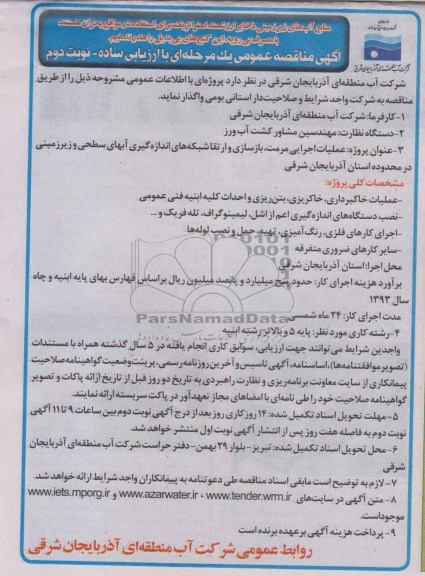 منابع آبهای زیرزمینی ذخایر ارزشمند استراتژیک برای استفاده در مواقع بحران هستند
با مصرف بی رویه این گنج های بی بدیل را هدر ندهیم
آگهی مناقصه عمومی یک مرحله‌ای با ارزیابی ساده - نوبت دوم
شرکت آب منطقه‌ای آذربایجان شرقی در نظر دارد پروژه‌ای با اطلاعات عمومی مشروحه ذیل را از طریق
مناقصه به شرکت واجد شرایط و صلاحیت‌دار استانی بومی واگذار نماید.
۱-کارفرما: شرکت آب منطقه‌ای آذربایجان شرقی
۲-دستگاه نظارت: مهندسین مشاور کشت آب ورز
۳-عنوان پروژه: عملیات اجرایی مرمت، بازسازی و ارتقا شبکه‌های اندازه‌گیری آبهای سطحی و زیرزمینی
در محدوده استان آذربایجان شرقی
مشخصات کلی پروژه:
-عملیات خاکبرداری، خاکریزی، بتن‌ریزی و احداث کلیه ابنیه فنی عمومی
-نصب دستگاه‌های اندازه‌گیری اعم از اشل، لیمینوگراف، تله فریک و ...
-اجرای کارهای فلزی، رنگ‌آمیزی، تهیه، حمل و نصب لوله‌ها
-سایر کارهای ضروری متفرقه
محل اجرا: استان آذربایجان شرقی
برآورد هزینه اجرای کار: حدود پنج میلیارد و پانصد میلیون ریال براساس فهارس بهای پایه ابنیه و چاه
سال ۱۳۹۳
مدت اجرای کار: ۲۴ ماه شمسی
۴-رشته کاری مورد نظر: پایه ۵ و بالاتر رشته ابنیه
واجدین شرایط می‌توانند جهت ارزیابی، سوابق کاری انجام یافته در ۵ سال گذشته همراه با مستندات
(تصویر موافقتنامه‌ها)، اساسنامه، آگهی تاسیس و آخرین روزنامه رسمی، پرینت وضعیت گواهینامه صلاحیت
پیمانکاری از سایت معاونت برنامه‌ریزی و نظارت راهبردی به تاریخ دو روز قبل از تاریخ ارائه پاکات و تصویر
گواهینامه صلاحیت خود را طی نامه‌ای با امضاهای مجاز تعهدآور در پاکت سربسته ارائه نمایند.
۵-مهلت تحویل اسناد تکمیل شده: ۱۴ روز کاری روز بعد از درج آگهی نوبت دوم بین ساعات ۹ تا ۱۱ آگهی
نوبت دوم به فاصله هفت روز پس از انتشار آگهی نوبت اول منتشر خواهد شد.
۶-محل تحویل اسناد تکمیل شده: تبریز- بلوار ۲۹ بهمن- دفتر حراست شرکت آب منطقه‌ای آذربایجان
شرقی
۷-لازم به توضیح است مابقی اسناد مناقصه طی دعوتنامه به پیمانکاران واجد شرایط ارائه خواهد شد.
۸-متن آگهی در سایت‌های www.tender.wrm.ir ، www.azarwater.ir و www.iets.mporg.ir
موجود است.
۹-پرداخت هزینه آگهی بر عهده برنده است
روابط عمومی شرکت آب منطقه‌ای آذربایجان شرقی
ParsNamadData